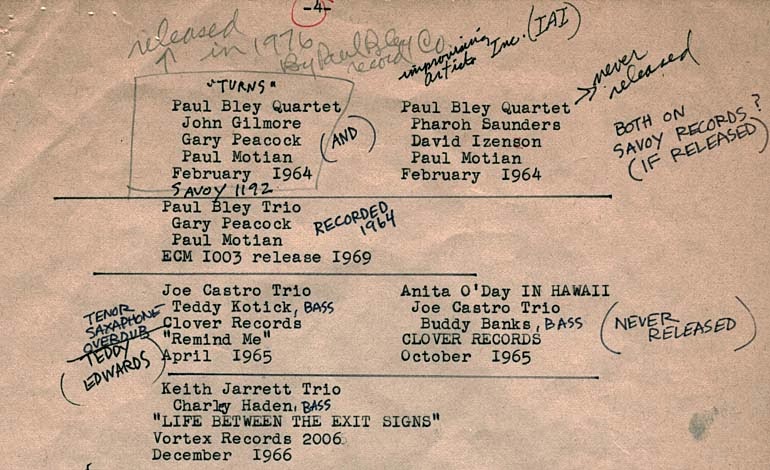 -4-
released
↑ in 1976
By Paul Bley Co.
record
improvising
artists Inc. (IAI)
"TURNS"
Paul Bley Quartet
John Gilmore
Gary Peacock
Paul Motian
February I964
SAVOY 1192
(AND)
Paul Bley Quartet
Pharoh Saunders
David Izenson
Paul Motian
February I964
never
released
BOTH ON
SAVOY RECORDS?
(IF RELEASED)
Paul Bley Trio
Gary Peacock
Paul Motian
ECM I003 release I969
RECORDED
1964
Joe Castro Trio
Teddy Kotick, BASS
Clover Records
"Remind Me"
April I965
TENOR
SAXAPHONE
OVERDUB
(TEDDY
EDWARDS)
Anita O'Day IN HAWAII
Joe Castro Trio
Buddy Banks, BASS
CLOVER RECORDS
October I965
(NEVER
RELEASED)
Keith Jarrett Trio
Charley Haden, BASS
"LIFE BETWEEN THE EXIT SIGNS"
Vortex Records 2006
December I966